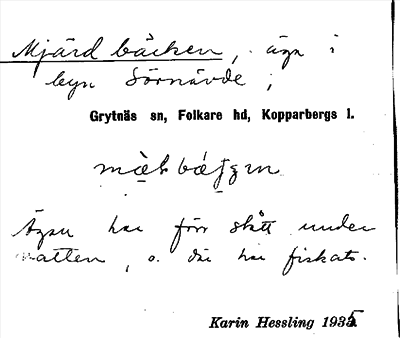 Mjärdbäcken, äga i
byn Sörnävde;
Grytnäs sn, Folkare hd, Kopparbergs l.
Ägan har förr stått under
vatten, o. där har fiskats.
Karin Hessling 1935